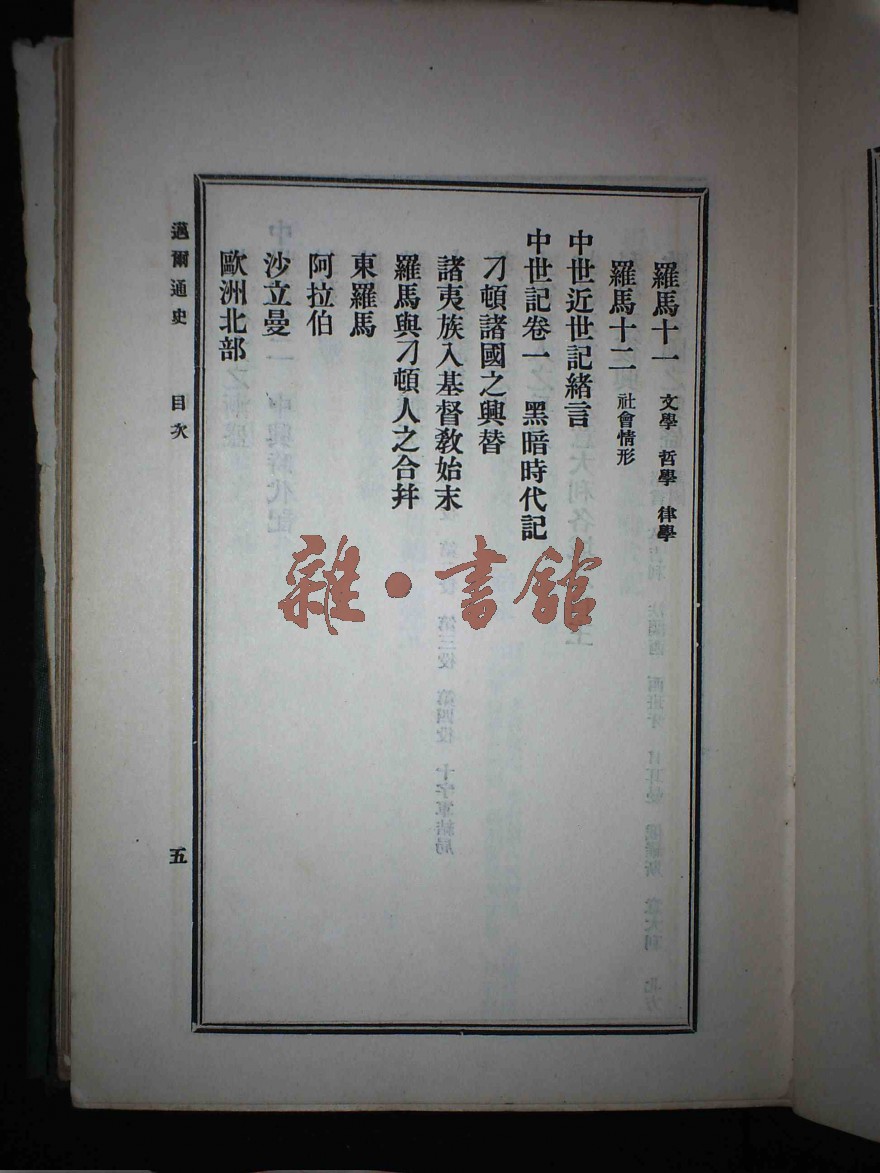 羅馬十一 文學 哲學 律學
羅馬十二 社會情形
中世近世記緒言
中世記卷一 黑暗時代記
刁頓諸國之興替
諸夷族入基督教始末
羅馬與刁頓人之合幷
東羅馬
阿拉伯
沙立曼
歐洲北部
邁爾通史 目次 五
雜·書館